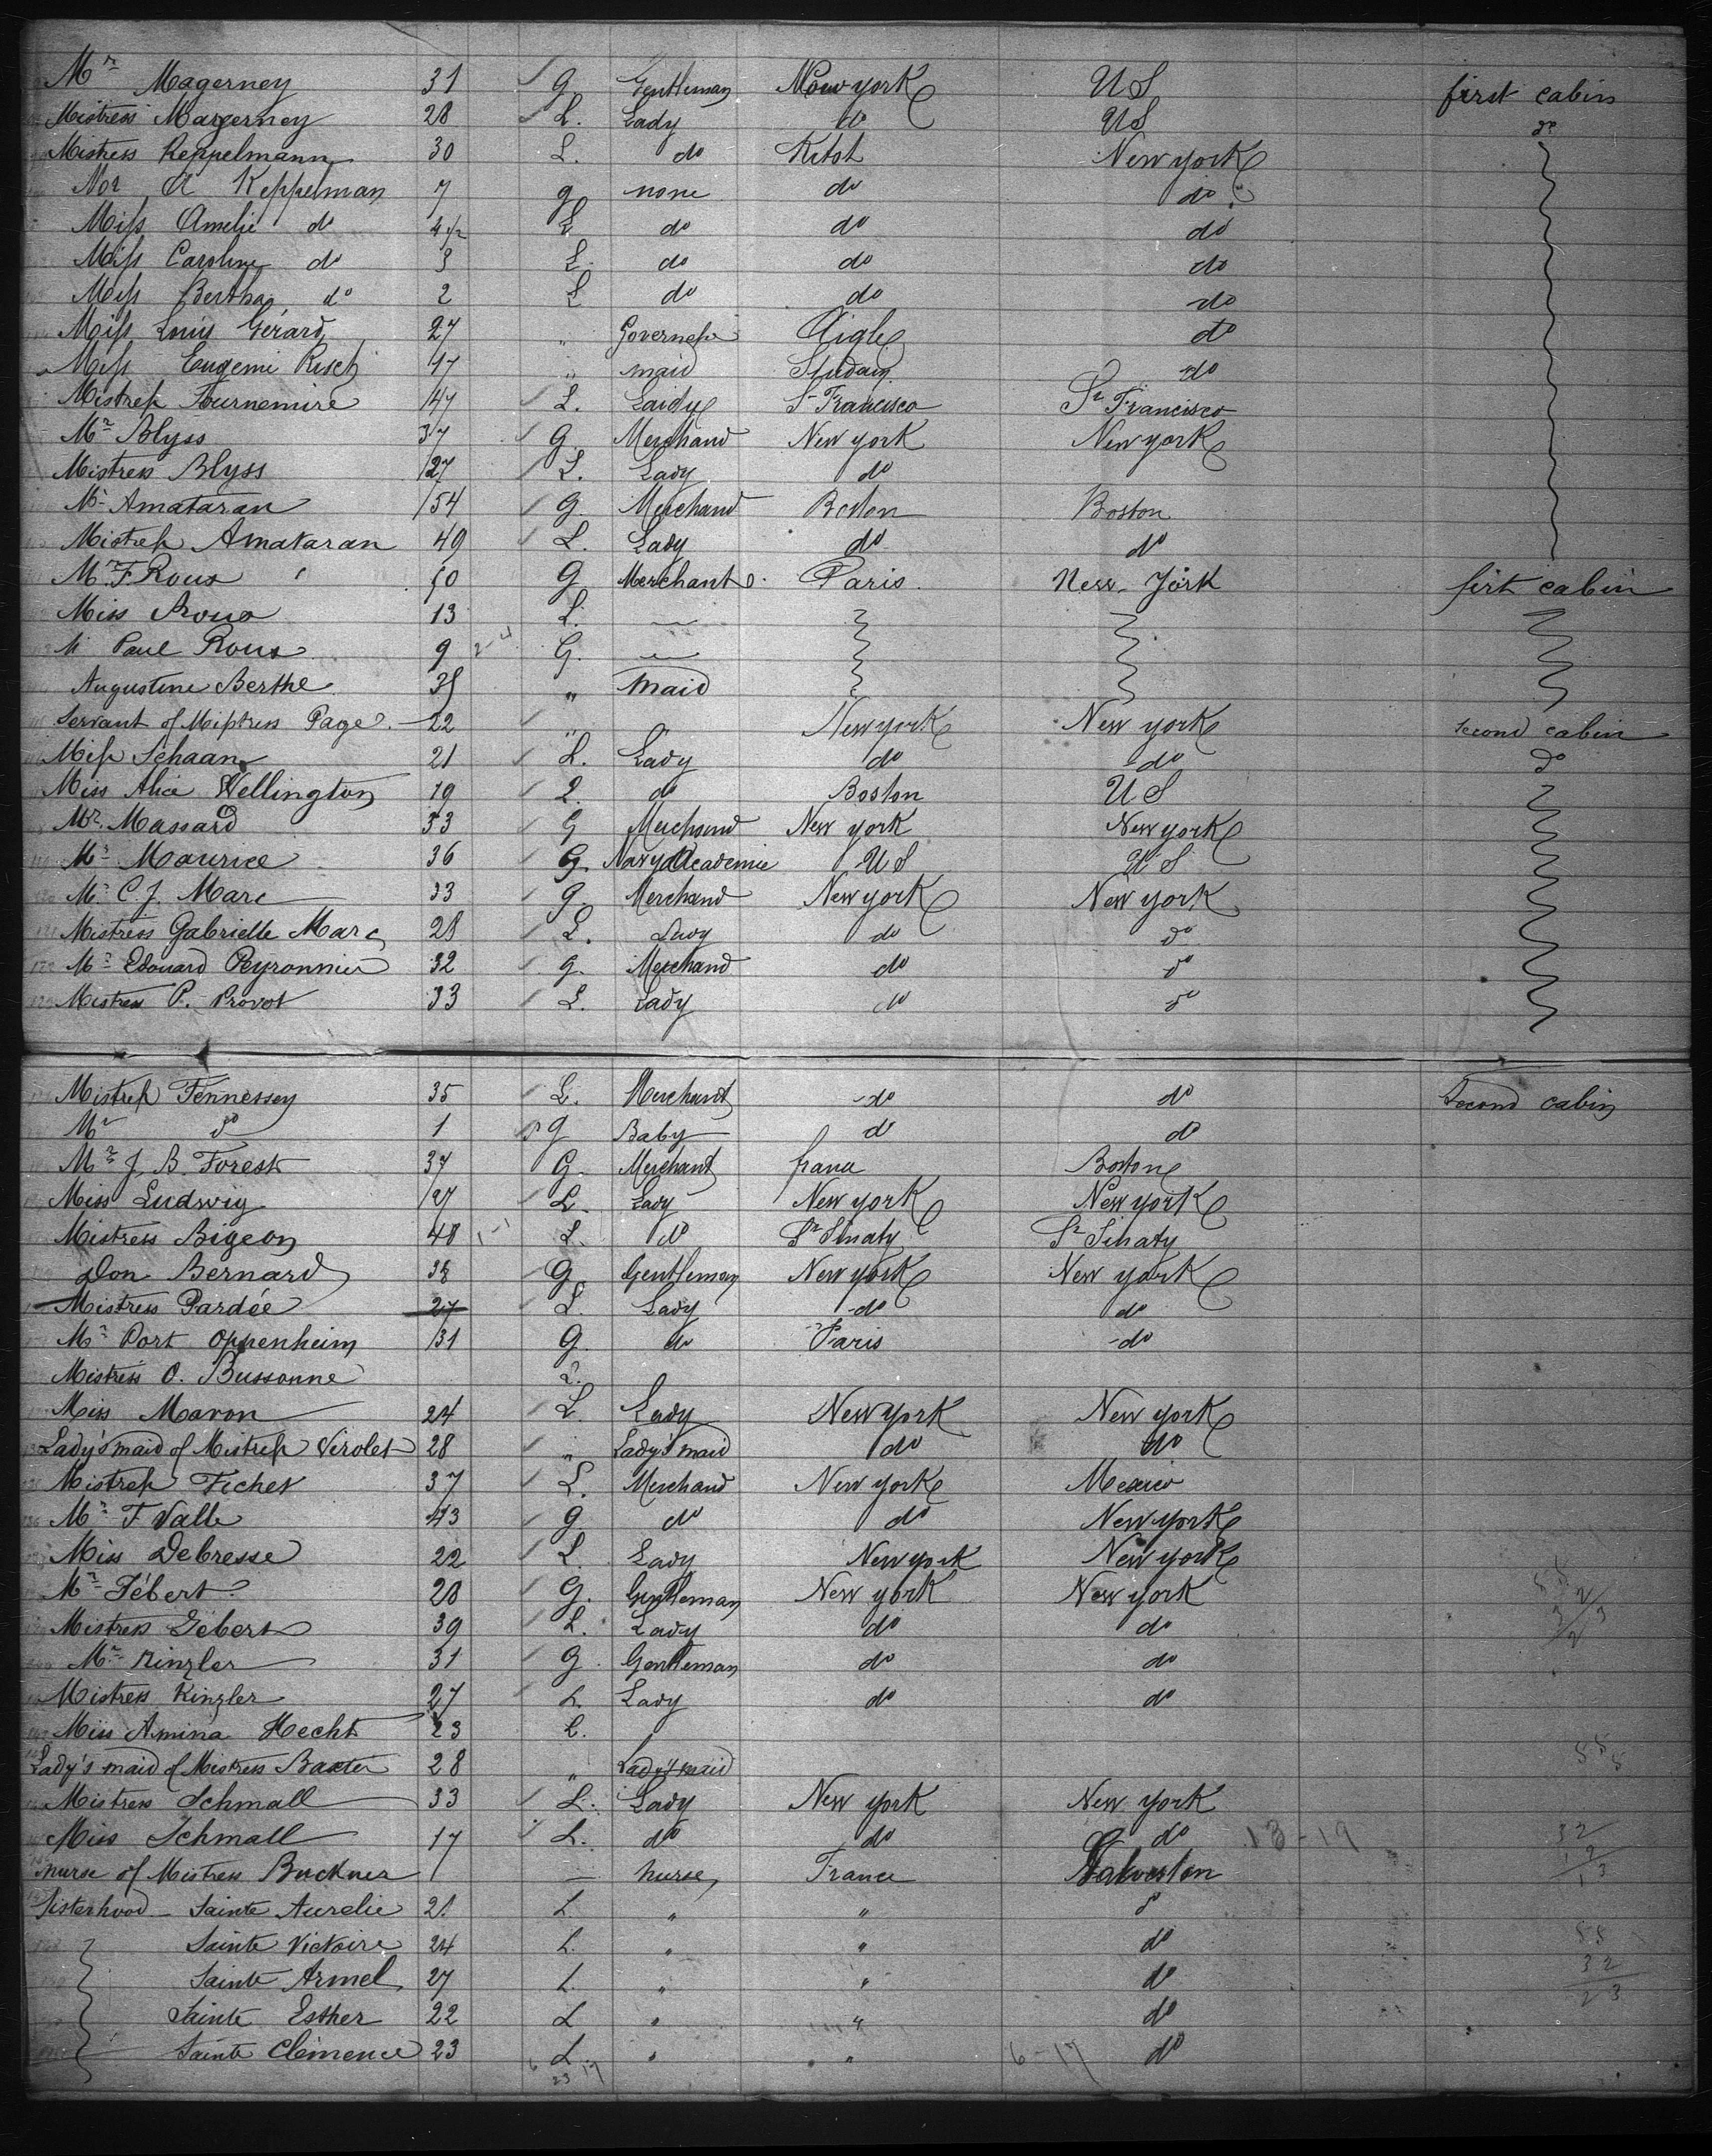 Mr Magerney 31 G Gentleman New york US first cabin
Mistress Magerney 28 L. Lady do US do
Mistress Keppelmann 30 L. do New york
A Keppelman 7 g none do do
Miss Amelie do 4 1/2 L do do do
Miss Caroline do 3 L. do do do
Miss Bertha do 2 L do do do
Miss Louis Gérard 27 " Governess Aigle do
Miss Eugenie Risch 17 " maid do
Mistress Fournemire 47 L. Laidy St Francisco St Francisco
Mr Blyss 37 G. Merchand New york New york
Mistress Blyss 27 L. Lady do
Mr Amataran 54 G. Merchand Boston Boston
Mistress Amataran 49 L. Lady do do
Mr F. Rous 50 G Merchant Paris. New-York firt cabin
Miss Rous 13 L.
M Paul Rous 9 G.
Augustine Berthe 35 " Maid
Servant of Mistress Page. 22 " " New york New york Second cabin
Miss Schaan 21 L. Lady do do do
Miss Alice Wellington 19 L. do Boston US
Mr. Massard 33 G Merchand New york New york
Mr Maurice 36 G. Navy Academie US US
Mr C. J. Marc 33 g. Merchand New york New york
Mistress Gabrielle Marc 28 L. Lady do do
Mr Edouard Peyronnier 32 g. Merchand do do
Mistress P. Provot 33 L. Lady do do
Mistress Fennessey 35 L. Merchant do do Second cabin
Mr do 1 g Baby do do
Mr J. B. Forest 37 G. Merchant france Boston
Miss Ludwig 27 L. Lady New york New york
Mistress Bigeon 48 L. do St Sinaty St Sinaty
Don Bernard 38 G. Gentleman New york New york
Mistress Pardée 27 L. Lady do do
Mr Port Oppenheim 31 G. do Paris do
Mistress O. Bussonne L.
Miss Maron 24 L. Lady New york New york
Lady's maid of Mistress Virolet 28 " Lady's maid do do
Mistress Fichet 37 L. Merchand New york Mexico
Mr F Valle 43 g do do New york
Miss Debresse 22 L. Lady New york New york
Mr Gébert 28 G. Gentleman New york New york
Mistress Gébert 39 L. Lady do do
Mr Kinzler 31 G. Gentleman do do
Mistress Kinzler 27 L. Lady do do
Miss Amina Hecht 23 L.
Lady's maid of Mistress Baxter 28 " Lady's maid
Mistress Schmall 33 L. Lady New york New york
Miss Schmall 17 L. do do do 13-19
nurse of Mistress Buckner 1 — nurse France Galveston
Sisterhood - Sainte Aurelie 21 L " " do
Sainte Victoire 24 L. " " do
Sainte Armel 27 L. " " do
Sainte Esther 22 L " " do
Sainte Clémence 23 L " " 6-17 do